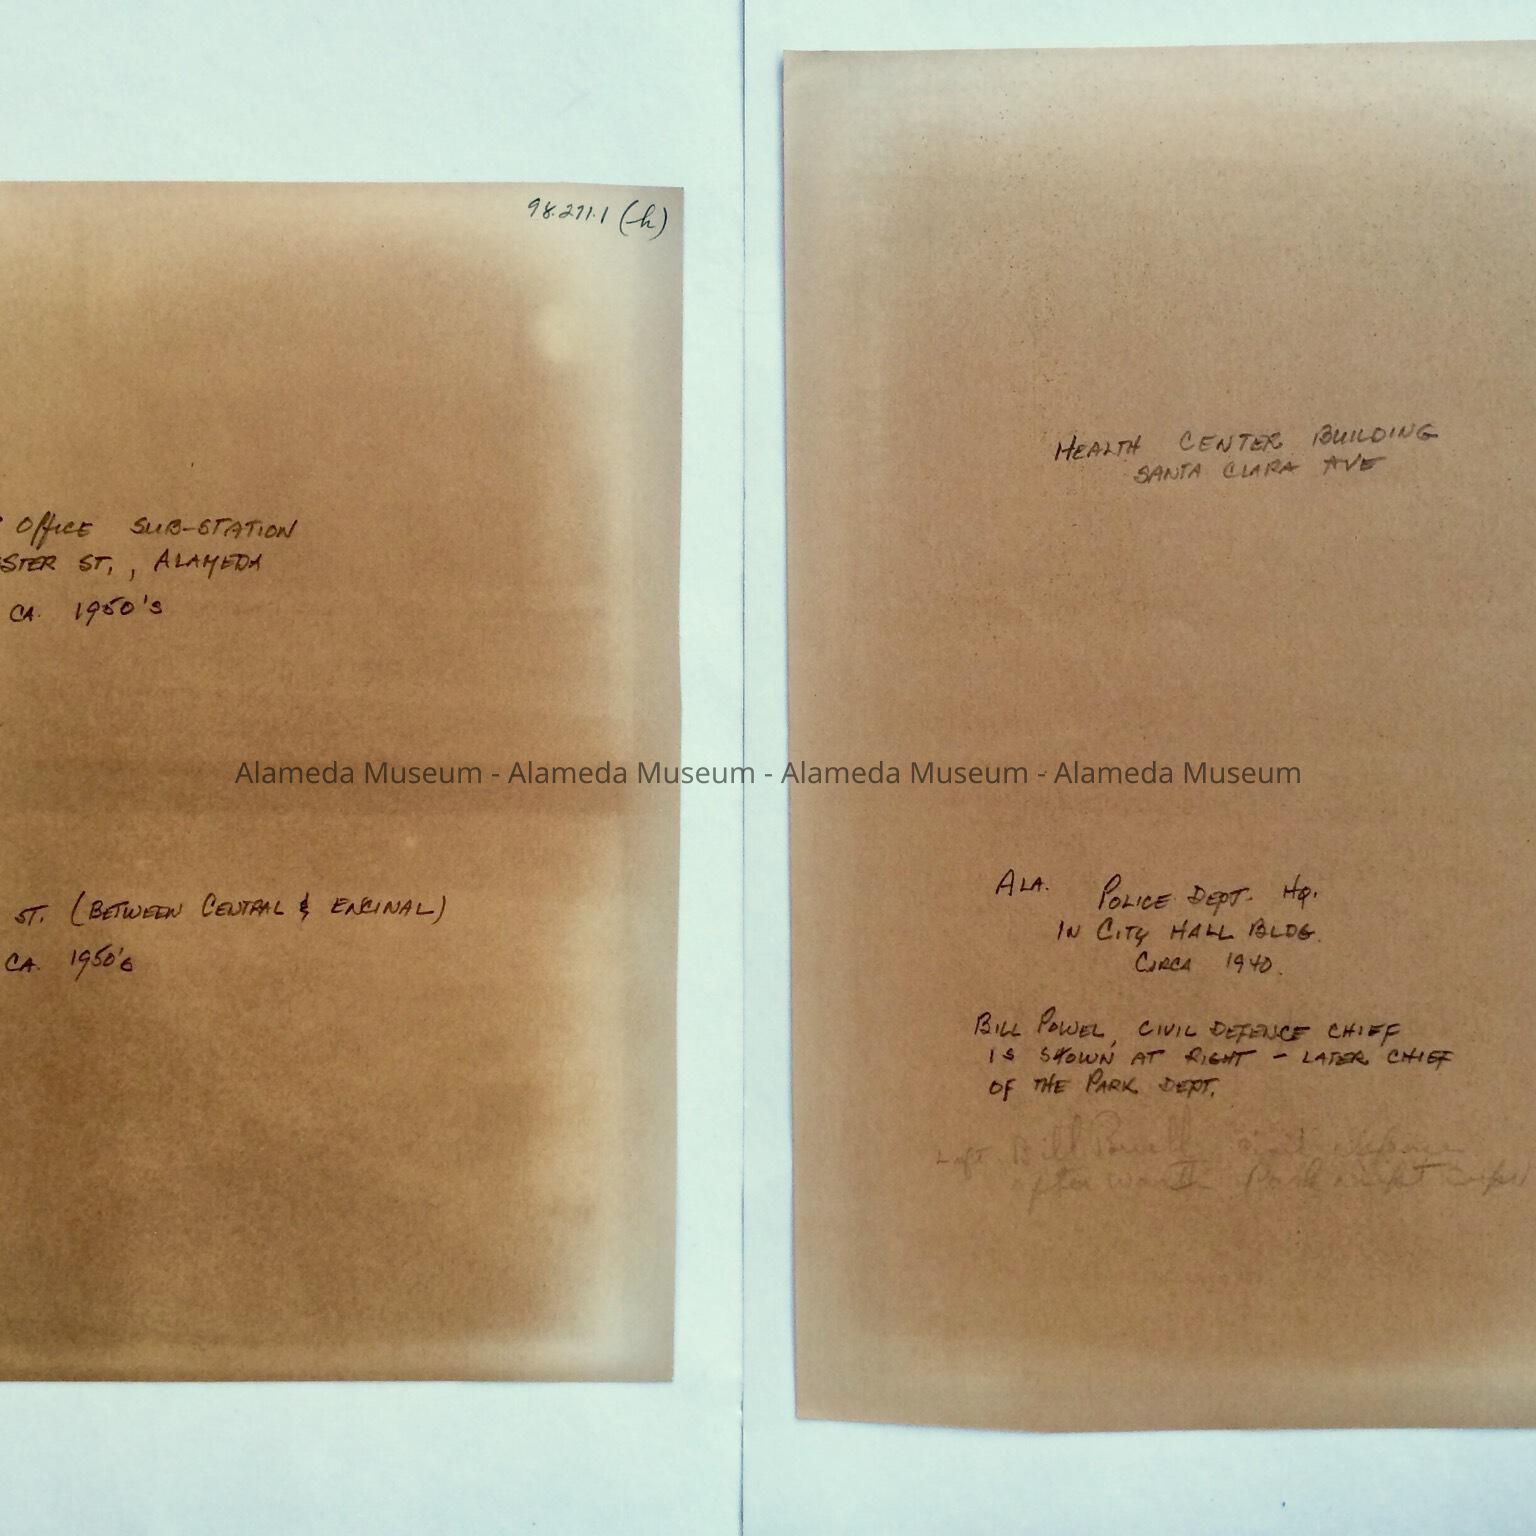 98.271.1 (-h)
Office SUB-STATION
STER ST., ALAMEDA
CA. 1950's
ST. (BETWEEN CENTRAL & ENCINAL)
CA. 1950's
HEALTH CENTER BUILDING
SANTA CLARA AVE
Alameda Museum - Alameda Museum - Alameda Museum - Alameda Museum
ALA. POLICE DEPT. HQ.
IN CITY HALL BLDG.
CIRCA 1940.
BILL POWEL, CIVIL DEFENCE CHIEF
IS SHOWN AT RIGHT - LATER CHIEF
OF THE PARK DEPT.
Left Bill Powell civil defence
after war Park